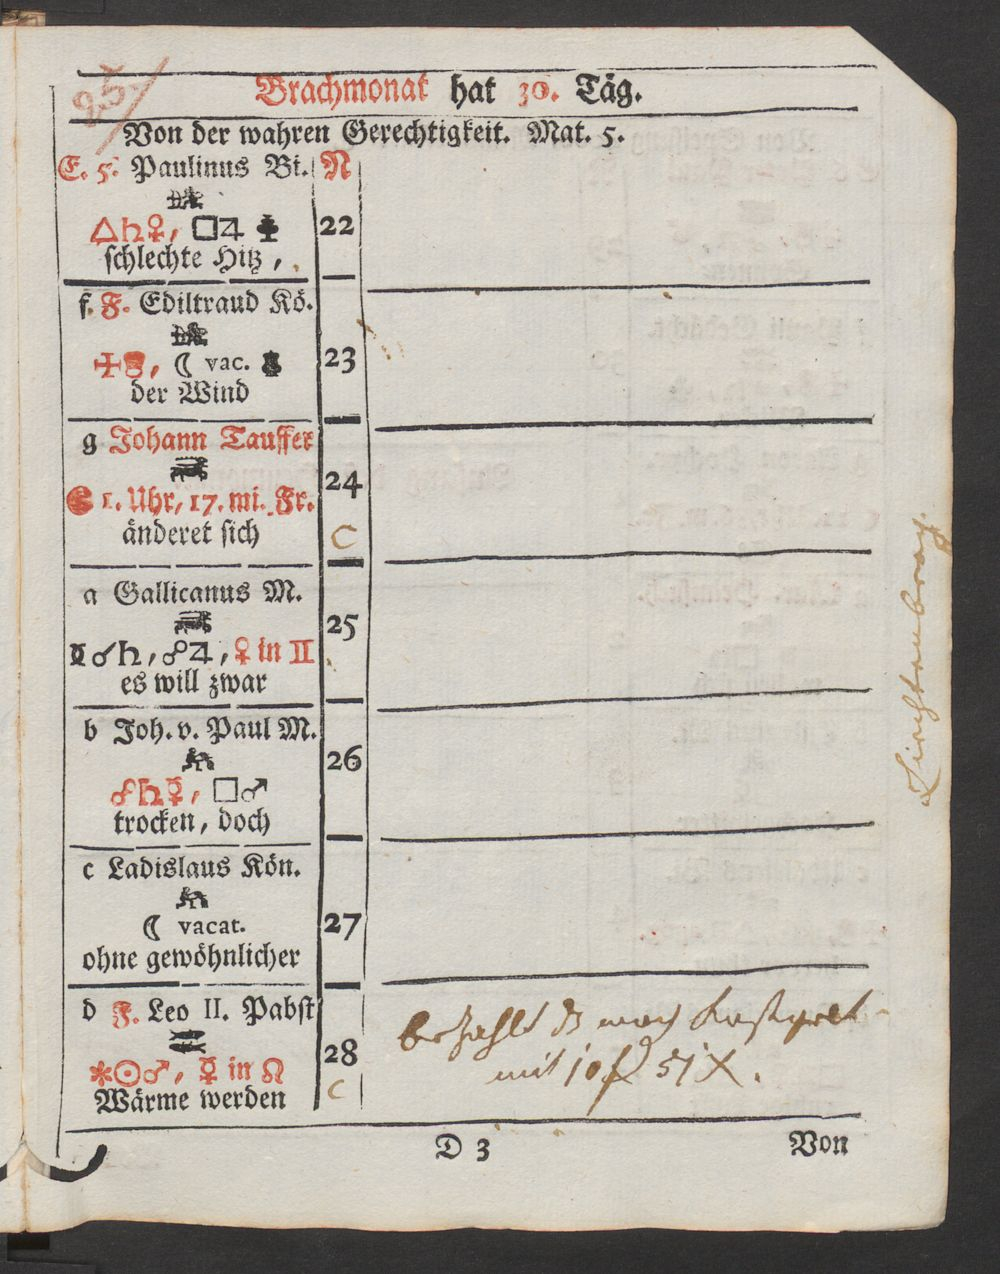 25
Brachmonat hat 30. Täg.
Von der wahren Gerechtigkeit. Mat. 5.
E. 5. Paulinus Bi. N
△♄♀, □♃ 22
schlechte Hitz,
f. F. Ediltraud Kö.
☾ vac. 23
der Wind
g Johann Tauffer
1. Uhr, 17. mi. Fr. 24
änderet sich C
a Gallicanus M.
☌♄, ☍♃, ♀ in II 25
es will zwar
b Joh. v. Paul M.
☍♄☿, □♂ 26
trocken, doch
c Ladislaus Kön.
☾ vacat. 27
ohne gewöhnlicher
d F. Leo II. Pabst
⚹☉♂, ☿ in ♌ 28
Wärme werden C
bezahlt
mit 10 f 51 X.
D 3 Von